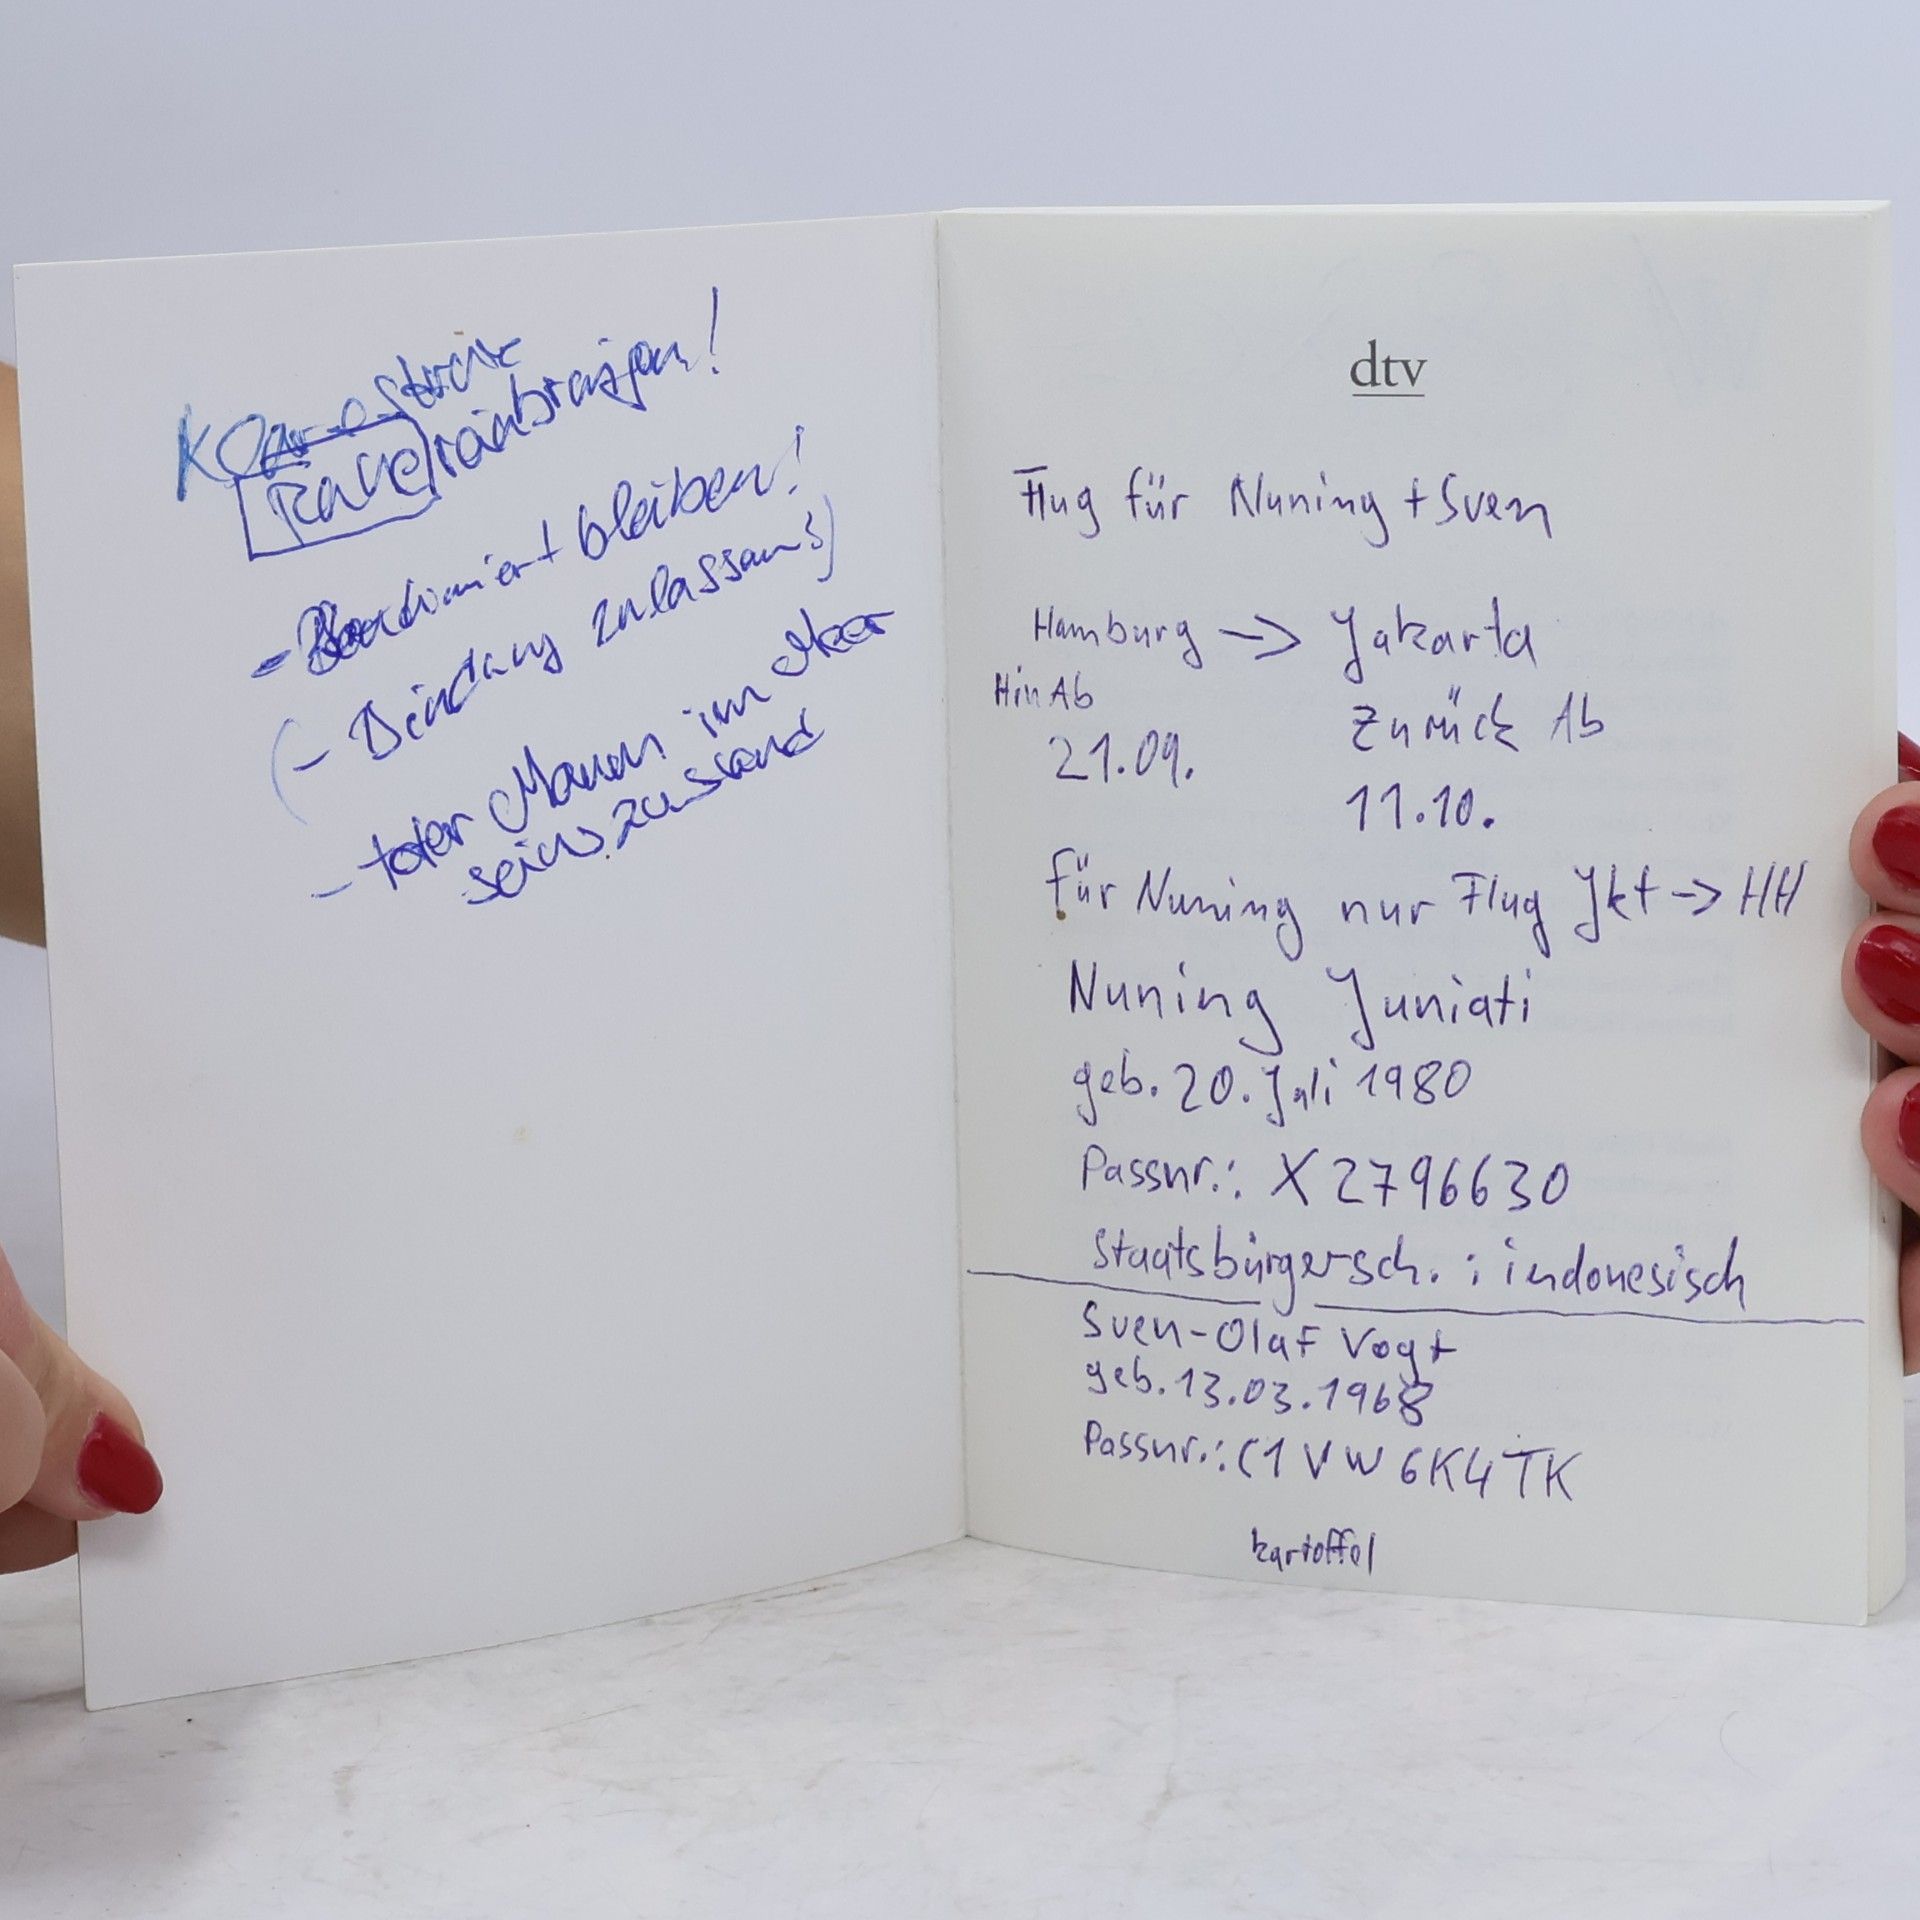 reinbringen!
bleiben!
(- Bindung zulassen!)
- toter Mann im Meer
seinszustand
dtv
Flug für Nuning + Sven
Hamburg -> Jakarta
Hin Ab
Zurück Ab
21.09.
11.10.
für Nuning nur Flug Jkt -> HH
Nuning Juniati
geb. 20. Juli 1980
Passnr.: X2796630
Staatsbürgersch. : indonesisch
Sven-Olaf Vogt
geb. 13.03.1968
Passnr.: C1VW6K4TK
kartoffel